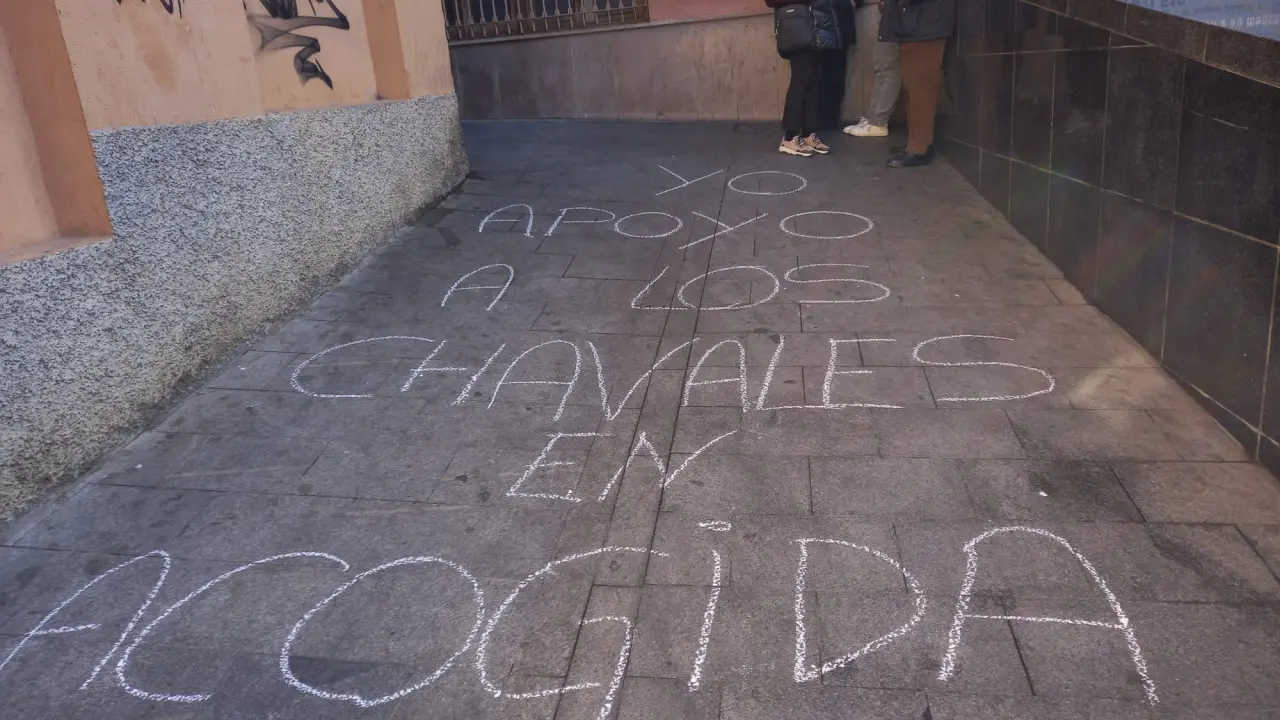 YO
APOYO
A LOS
CHAVALES
EN
ACOGiDA